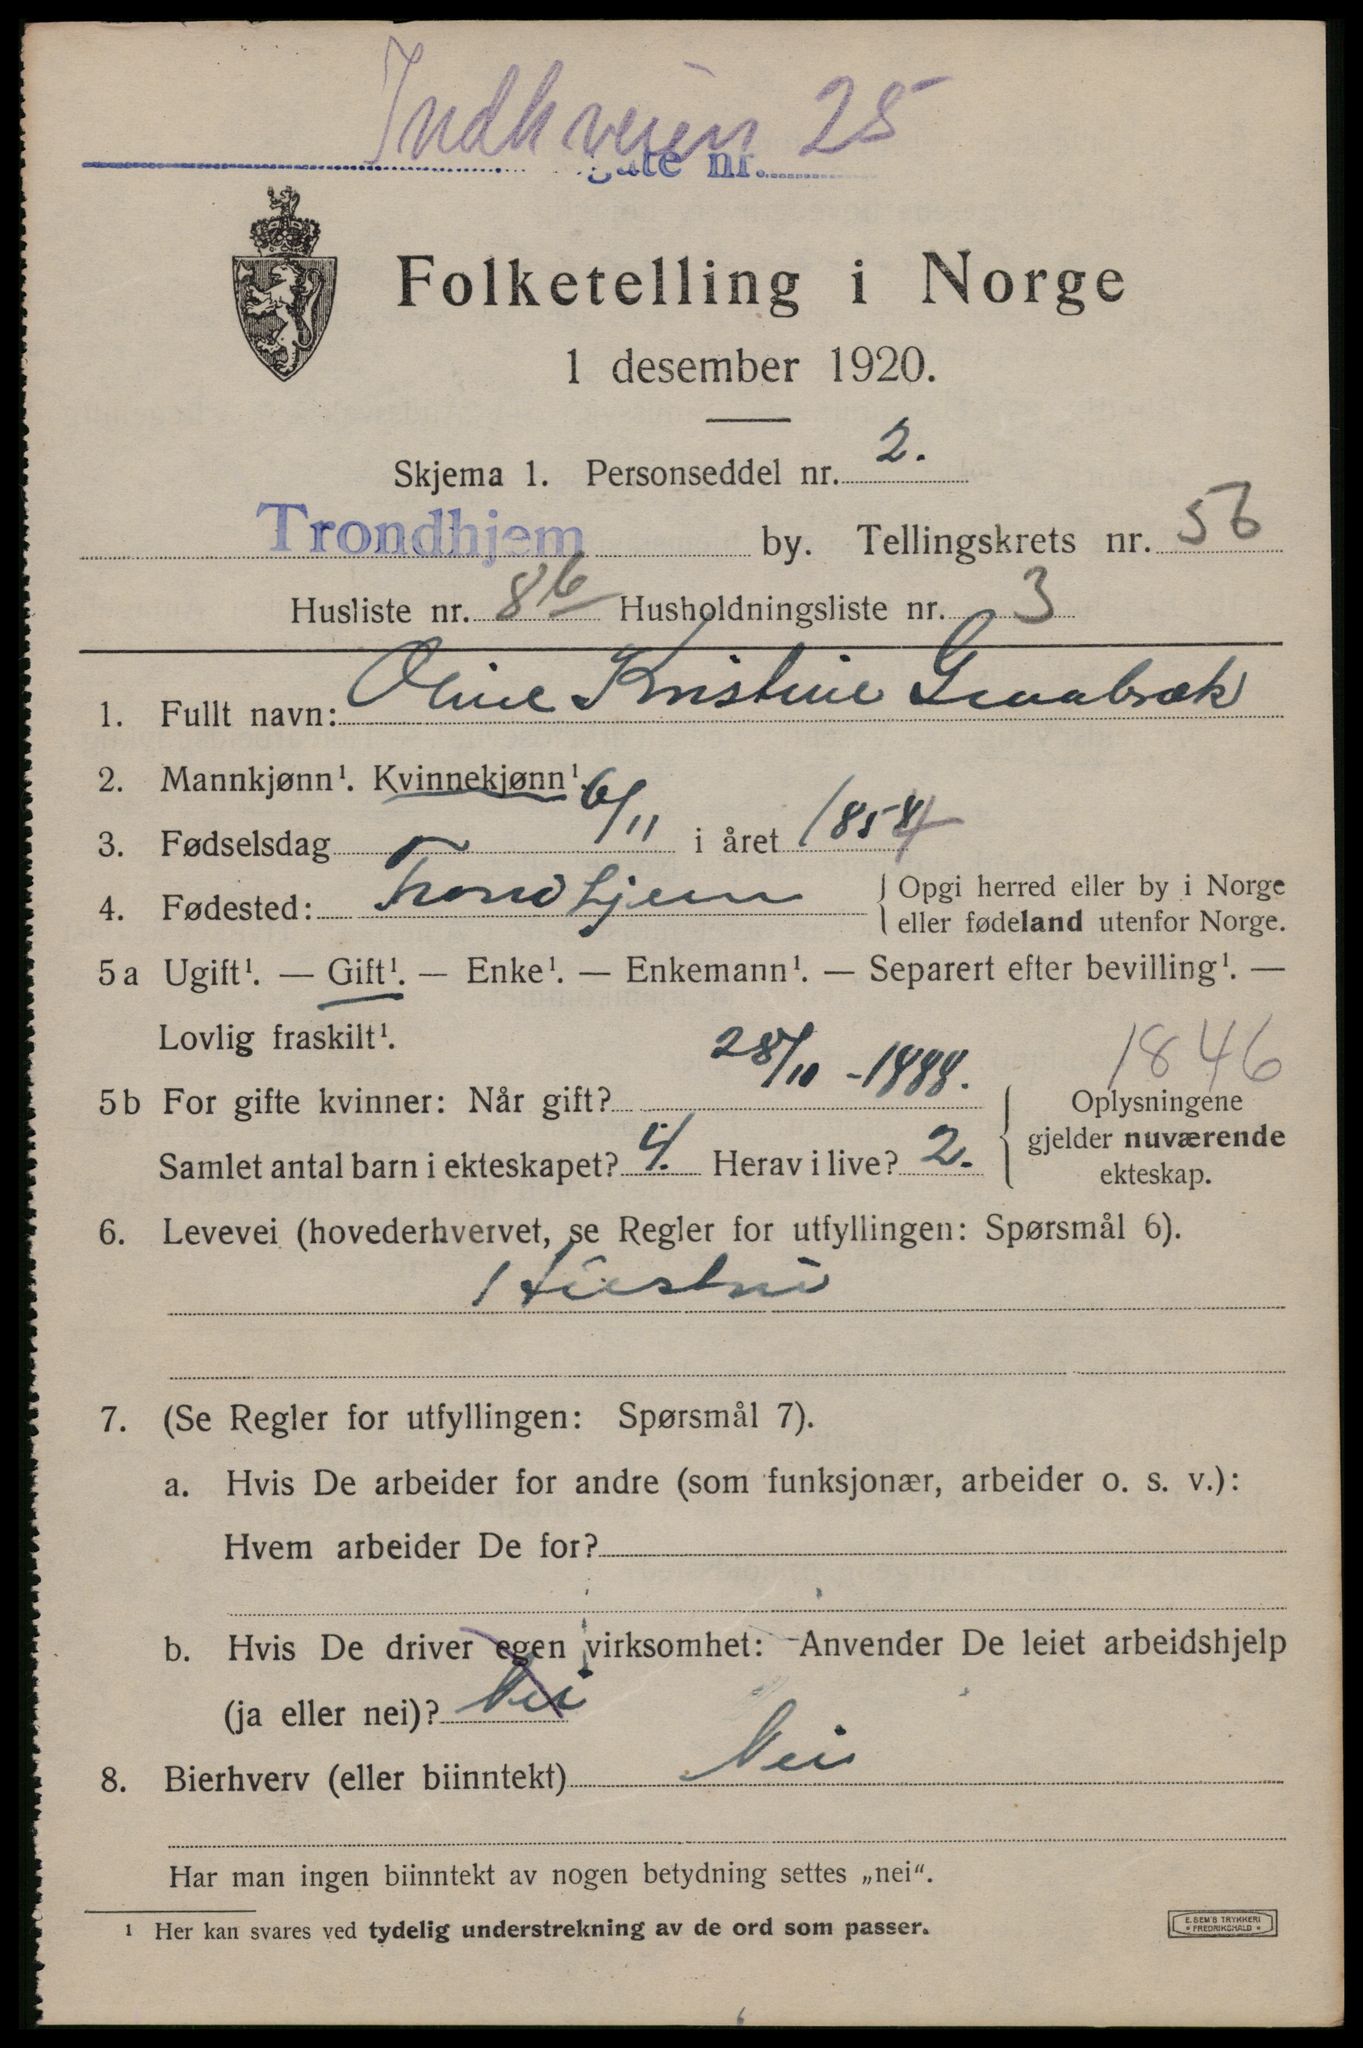 Indhveien 25
gate nr.
Folketelling i Norge
1 desember 1920.
Skjema 1. Personseddel nr. 2.
Trondhjem by. Tellingskrets nr. 56
Husliste nr. 86 Husholdningsliste nr. 3
1. Fullt navn: Oline Kristine Graabræk
2. Mannkjønn¹. Kvinnekjønn¹.
3. Fødselsdag 6/11 i året 1854
4. Fødested: Trondhjem { Opgi herred eller by i Norge
eller fødeland utenfor Norge.
5a Ugift¹. — Gift¹. — Enke¹. — Enkemann¹. — Separert efter bevilling¹. —
Lovlig fraskilt¹.
1846
5b For gifte kvinner: Når gift? 28/10 - 1888. { Oplysningene
gjelder nuværende
Samlet antal barn i ekteskapet? 4. Herav i live? 2. ekteskap.
6. Levevei (hovederhvervet, se Regler for utfyllingen: Spørsmål 6).
Hustru
7. (Se Regler for utfyllingen: Spørsmål 7).
a. Hvis De arbeider for andre (som funksjonær, arbeider o. s. v.):
Hvem arbeider De for?
b. Hvis De driver egen virksomhet: Anvender De leiet arbeidshjelp
(ja eller nei)? Nei
8. Bierhverv (eller biinntekt) Nei
Har man ingen biinntekt av nogen betydning settes „nei“.
¹ Her kan svares ved tydelig understrekning av de ord som passer.
E. SEM'S TRYKKERI
FREDRIKSHALD